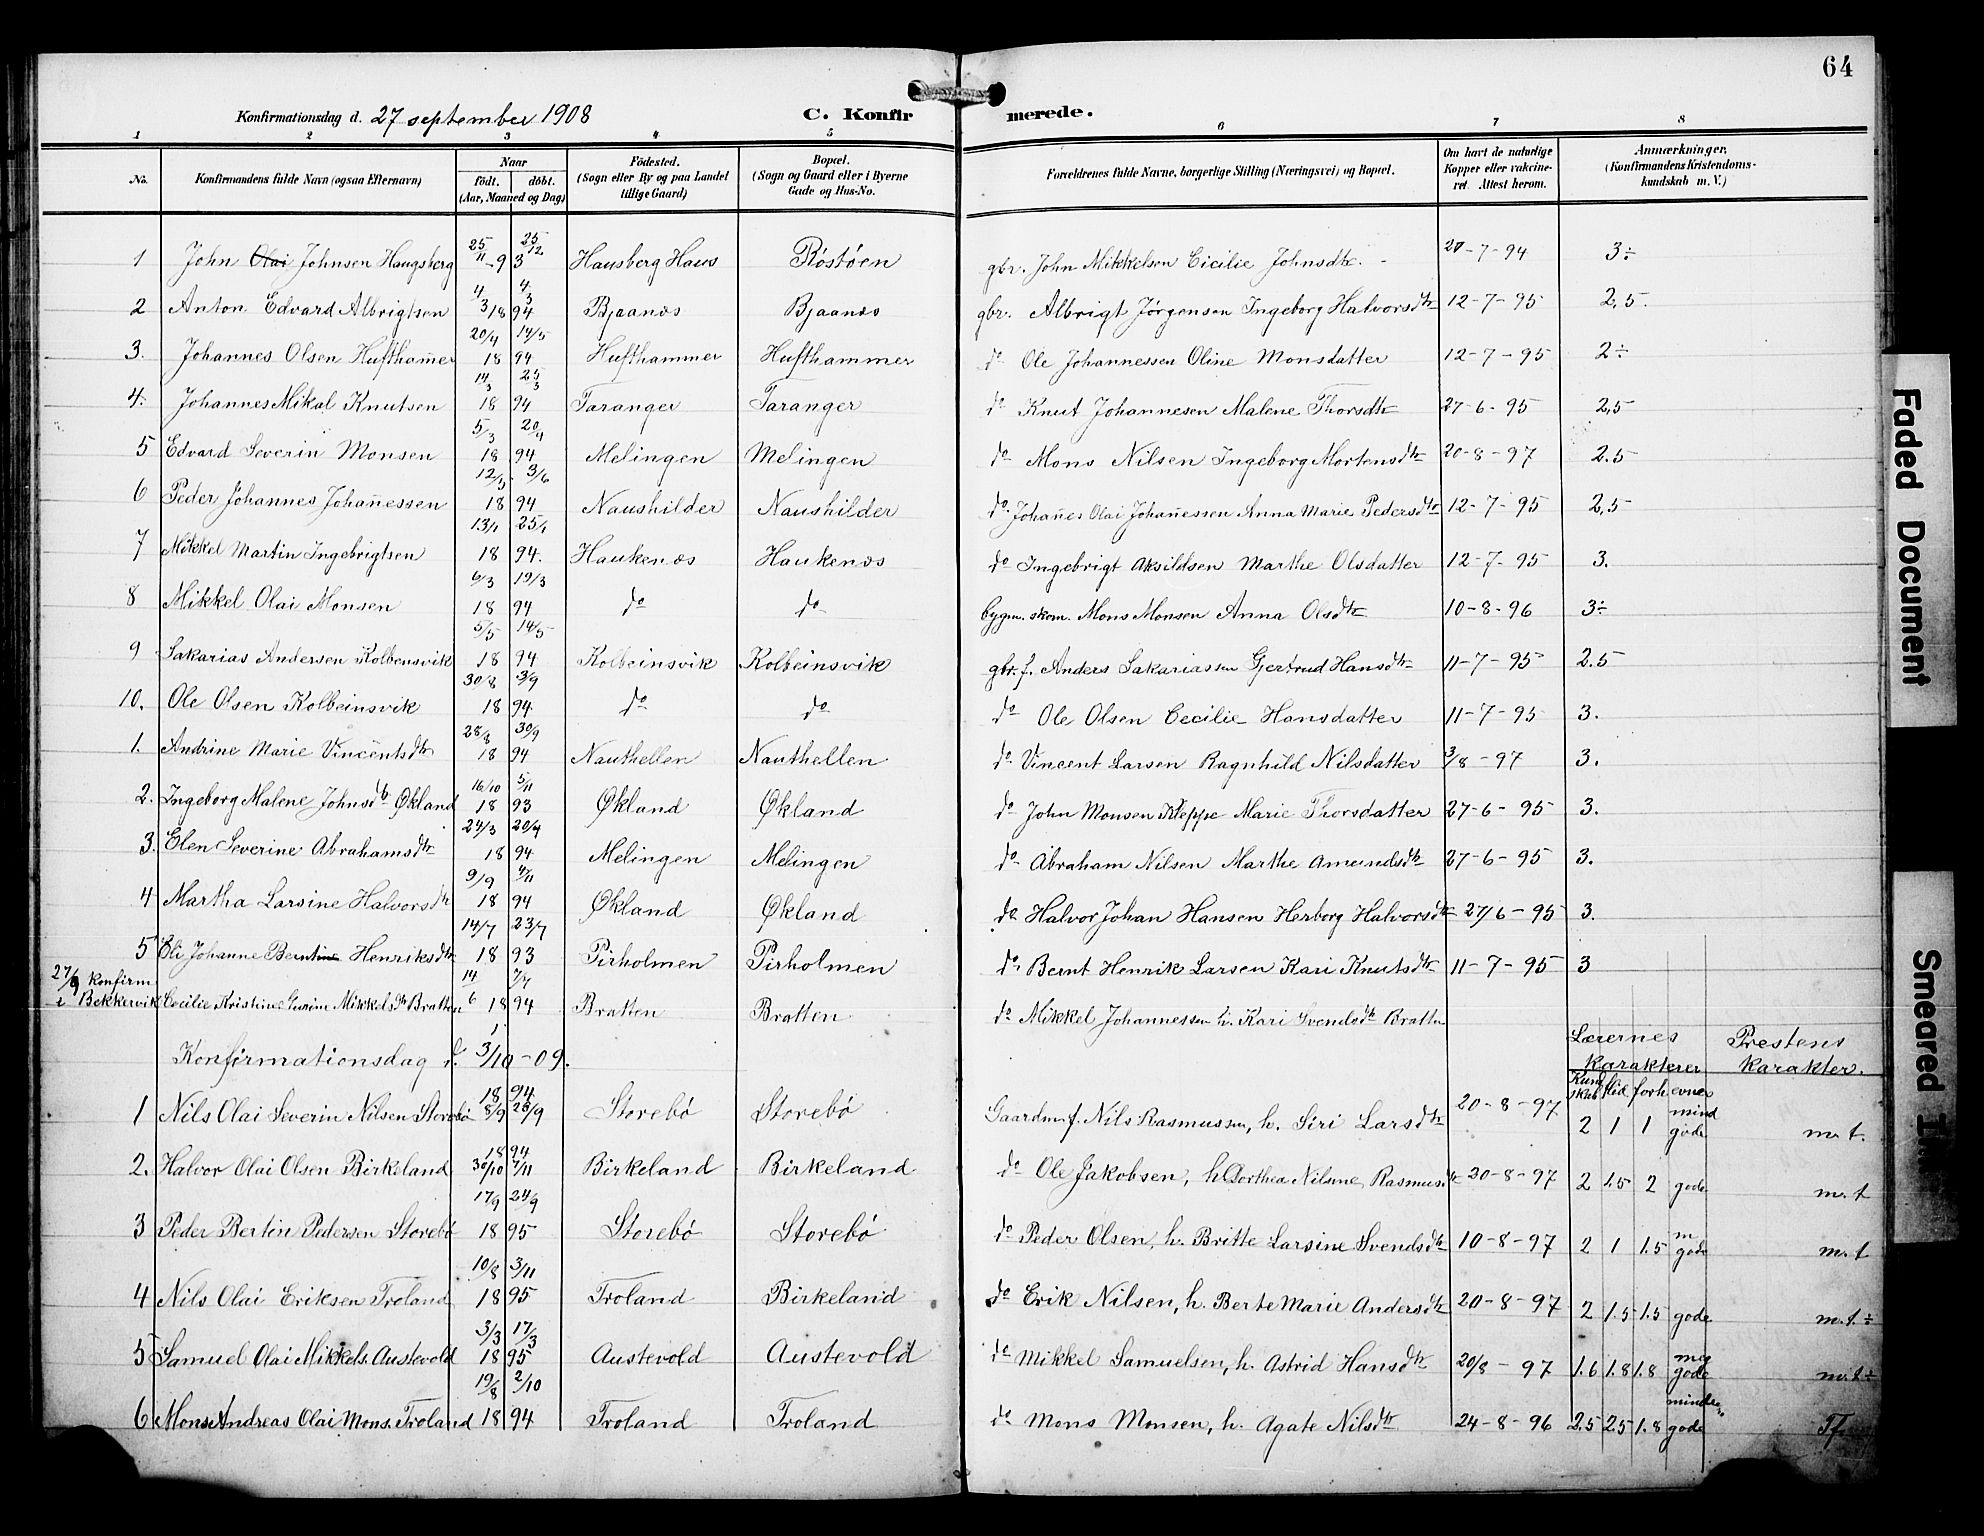 64
Konfirmationsdag d. 27 september 1908 C. Konfirmerede.
1 2 3 4 5 6 7 8
No. Konfirmandens fulde Navn (ogsaa Efternavn) Naar født. døbt. (Aar, Maaned og Dag) Födested. (Sogn eller By og paa Landet tillige Gaard) Bopæl. (Sogn og Gaard eller i Byerne Gade og Hus-No. Forældrenes fulde Navne, borgerlige Stilling (Næringsvei) og Bopæl. Om havt de naturlige Kopper eller vaccineret. Attest herom. Anmærkninger, (Konfirmandens Kristendomskundskab m. V.)
1 John Olai Johnsen Haugsberg 25/11-93 25/12 Hausberg Haus Röstöen gbr. John Mikkelsen Cicilie Johnsdtr. 20-7-94 3÷
2 Anton Edvard Albrigtsen 4/3 4/3 1894 Bjaanæs Bjaanæs gbr. Albrigt Jørgensen Ingeborg Halvorsdtr 12-7-95 2,5.
3. Johannes Olsen Hufthamer 20/4 14/5 1894 Hufthammer Hufthammer do Ole Johannessen Oline Monsdatter 12-7-95 2÷
4. Johannes Mikal Knutsen 14/3 25/3 1894 Taranger Taranger do Knut Johannesen Malene Thorsdtr 27-6-95 2,5
5 Edvard Severin Monsen 5/3 20/4 1894 Melingen Melingen do Mons Nilsen Ingeborg Mortensdtr 20-8-97 2.5
6 Peder Johannes Johanessen 12/3 3/6 1894 Naushilder Naushilder do. Johanes Olai Johanessen Anna Marie Pedersdtr 12-7-95 2,5
7 Mikkel Martin Ingebrigtsen 13/1 25/1 1894. Haukenæs Haukenæs do Ingebrigt Aksildsen Marthe Olsdatter 12-7-95 3.
8 Mikkel Olai Monsen 6/3 19/3 1894 do do bygm. skom. Mons Monsen Anna Olsdtr 10-8-96 3÷
9 Sakarias Andersen Kolbensvik 5/5 14/5 1894 Kolbeinsvik Kolbeinsvik gbr. f. Anders Sakariassen Gjertrud Hansdtr 11-7-95 2.5
10. Ole Olsen Kolbeinsvik 30/8 3/9 1894 do do do Ole Olsen Cecilie Hansdatter 11-7-95 3.
1. Andrine Marie Vincentsdtr 28/8 30/9 1894 Nauthellen Nauthellen do Vincent Larsen Ragnhild Nilsdatter 3/8-97 3.
2. Ingeborg Malene Johnsdtr Økland 16/10 5/11 1893 Økland Økland do John Monsen Kleppe Marie Thorsdatter 27-6-95 3.
3. Elen Severine Abrahamsdtr 24/3 20/4 1894 Melingen Melingen do Abraham Nilsen Marthe Amundsdtr 27-6-95 3.
4 Martha Larsine Halvorsdtr 9/9 4/11 1894 Økland Økland do Halvor Johan Hansen Herborg Halvorsdtr 27/6-95 3.
5 Eli Johanne Berntine Henriksdtr 14/7 23/7 1893 Pirholmen Pirholmen do. Bernt Henrik Larsen Kari Knutsdtr 11-7-95 3
27/9 konfirm i Bekkervik Cecilie Kristine Mikkelsdtr Bratten 14/6 7/7 1894 Bratten Bratten. do Mikkel Johannessen h. Kari Svendsdtr Bratten
Konfirmationsdag d. 3/10-09. Lærernes karakterer Prestens karakter.
Kundskab flid forh evner
1 Nils Olai Severin Nilsen Storebø 1894 8/9 28/9 Storebø Storebø Gaardm. f. Nils Rasmussen, h. Siri Larsdtr 20-8-97 2 1 1 mind gode m. t.
2. Halvor Olai Olsen Birkeland 1894 30/10 4/11 Birkeland Birkeland do Ole Jakobsen, h. Dorthea Nilsine Rasmusdtr 20-8-97 2 1.5 2 gode m. t
3 Peder Bertin Pedersen Storebø 17/9 24/9 1895 Storebø Storebø do Peder Olsen, h. Britte Larsine Svendsdtr 10-8-97 2 1 1.5 m gode m. t
4 Nils Olai Eriksen Troland 10/8 3/11 1895 Troland Birkeland do Erik Nilsen, h. Berte Marie Andersdtr 20-8-97 2 1.5 1.5 gode m. t. ÷
5 Samuel Olai Mikkels. Austevold 3/3 17/3 1895 Austevold Austevold do Mikkel Samuelsen, h. Astrid Hansdtr 20/8-97 1.6 1.8 1.8 meg gode m. t ÷
6 Mons Andreas Olai Mons. Troland 19/8 2/10 1894 Troland Troland do Mons Monsen, h. Agate Nilsdtr 24-8-96 2.5 2.5 1.8 mindre gode Tf.
Faded Document
Smeared